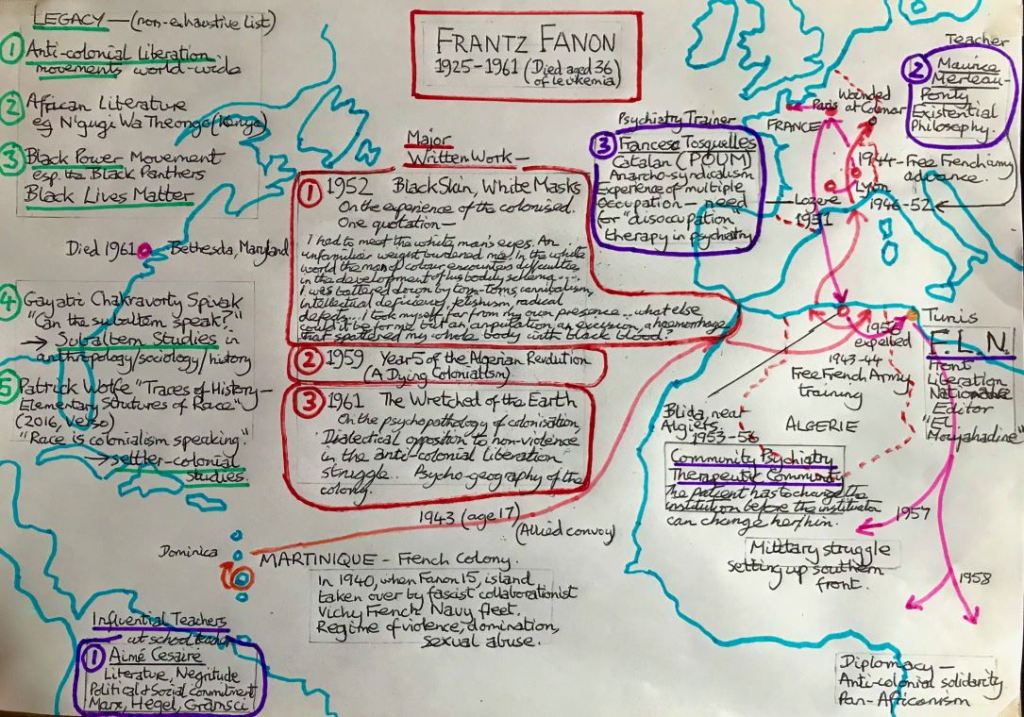 LEGACY — (non-exhaustive list)
① Anti-colonial Liberation
movements world-wide
② African Literature
eg N'gugi Wa Theongo (Kenya)
③ Black Power Movement
esp. the Black Panthers
Black Lives Matter
Died 1961
Bethesda, Maryland
④ Gayatri Chakravorty Spivak
"Can the subaltern speak?"
→ Subaltern Studies in
anthropology/sociology/history
⑤ Patrick Wolfe "Traces of History —
Elementary Strutures of Race"
(2016, Verso)
"Race is colonialism speaking."
→ settler-colonial
studies.
FRANTZ FANON
1925-1961 (Died aged 36
of leukemia)
Major
Written Work —
① 1952 Black Skin, White Masks
On the experience of the colonised.
One quotation —
I had to meet the white man's eyes. An
unfamiliar weight burdened me. In the white
world the man of colour encounters difficulties
in the development of his bodily schema...
I was battered down by tom-toms, cannibalism,
intellectual deficiency, fetishism, racial
defects... I took myself far from my own presence... what else
could it be for me but an amputation, an excision, a haemorrhage
that spattered my whole body with black blood?
② 1959 Year 5 of the Algerian Revolution
(A Dying Colonialism)
③ 1961 The Wretched of the Earth
On the psychopathology of colonisation,
Dialectical opposition to non-violence
in the anti-colonial liberation
struggle. Psycho-geography of the
colony.
1943 (age 17)
(Allied convoy)
Dominica
MARTINIQUE – French Colony.
In 1940, when Fanon 15, island
taken over by fascist collaborationist
Vichy French Navy fleet.
Regime of violence, domination,
sexual abuse.
Influential Teachers
at school
① Aimé Cesaire
Literature, Negritude
Political & social commitment
Marx, Hegel, Gramsci
Psychiatry Trainer
③ Fancesc Tosquelles
Catalan (POUM)
Anarcho-syndicalism
Experience of multiple
occupation — need
for "disoccupation"
therapy in psychiatry
Teacher
② Maurice
Merleau-
Ponty
Existential
Philosophy.
Wounded
at Colmar
Paris
FRANCE
1944 - Free French army
advance.
Lyon
1946-52
Lozere
1951
Tunis
1956
expelled
1943-44
Free French Army
training
ALGERIE
F.L.N.
Front
Liberation
Nationale
Editor
"El
Moujahadine"
Blida, near
Algiers.
1953-56
Community Psychiatry
Therapeutic Community
The patient has to change the
institution before the institution
can change her/him.
1957
Military struggle
setting up southern
front.
1958
Diplomacy —
Anti-colonial solidarity
Pan-Africanism